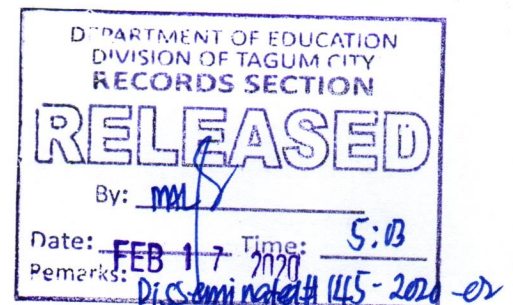 DEPARTMENT OF EDUCATION
DIVISION OF TAGUM CITY
RECORDS SECTION
RELEASED
By:
Date: FEB 17 2020 Time: 5:03
Remarks: Disseminated # 145-2020-er